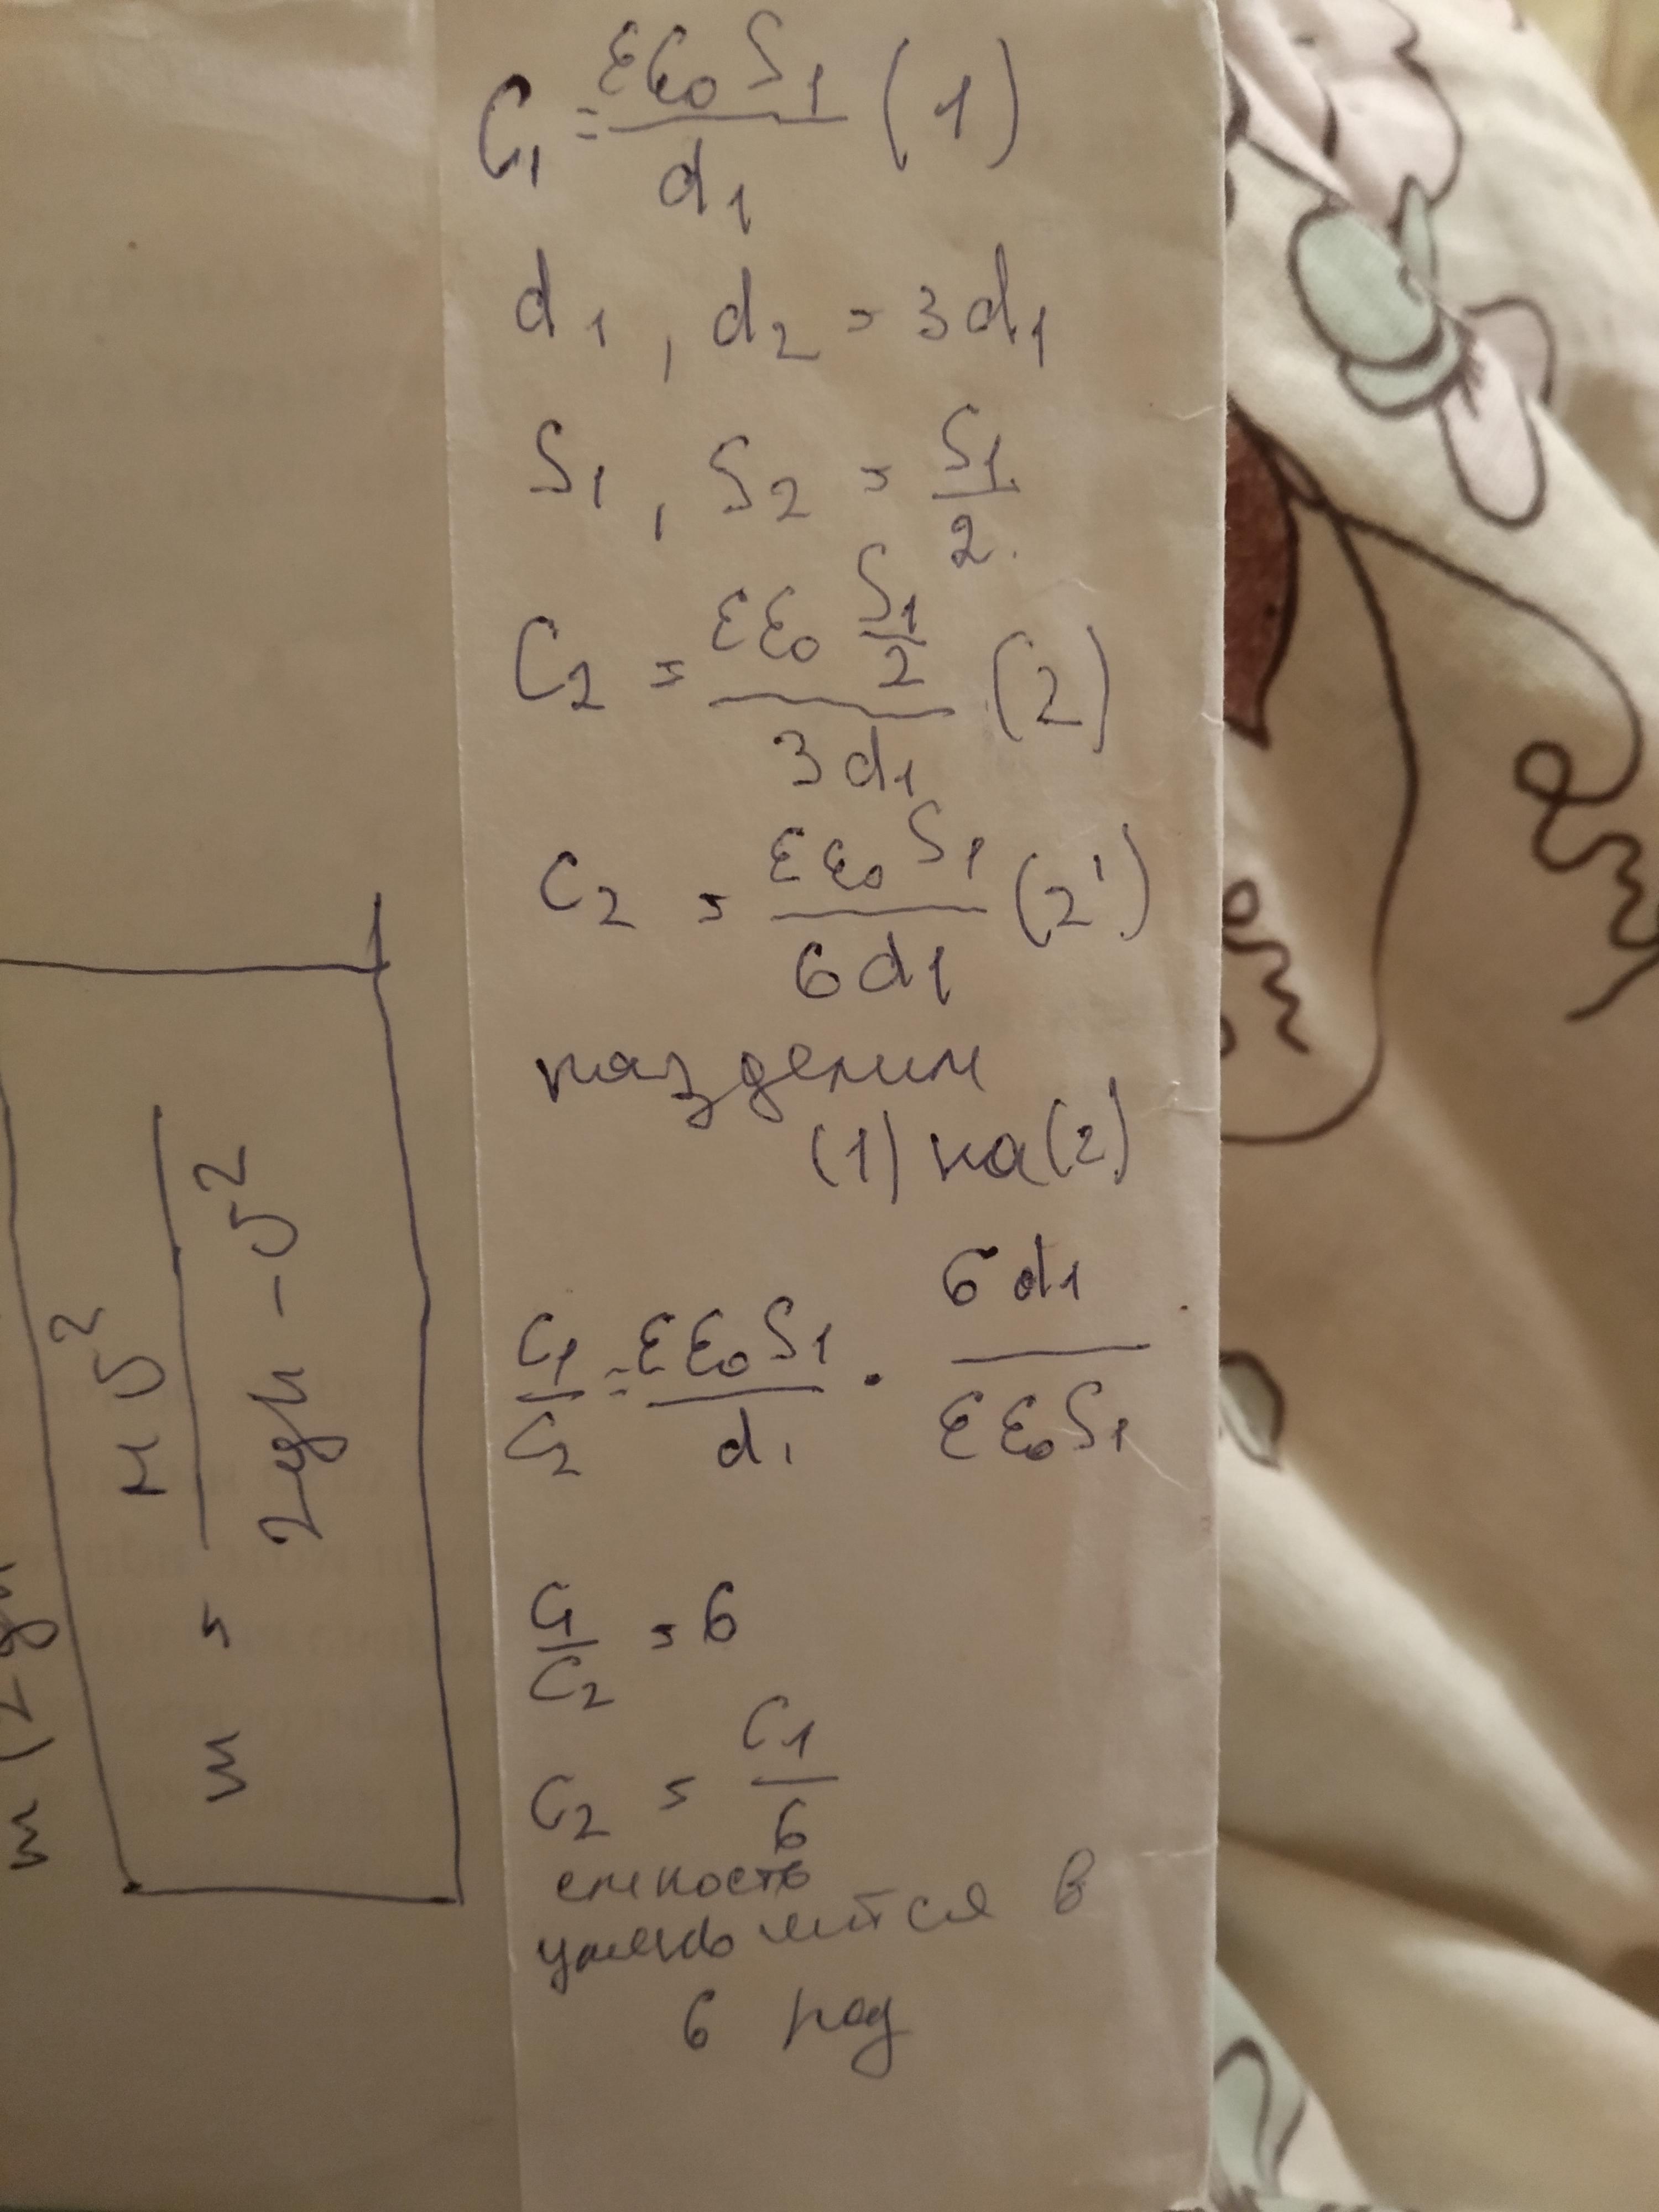 C₁ = εε₀S₁/d₁ (1)
d₁, d₂ = 3d₁
S₁, S₂ = S₁/2.
C₂ = εε₀ S₁/2 / 3d₁ (2)
C₂ = εε₀S₁/6d₁ (2')
разделим
(1) на (2)
C₁/C₂ = εε₀S₁/d₁ · 6d₁/εε₀S₁
C₁/C₂ = 6
C₂ = C₁/6
емкость
уменьшится в
6 раз
m = Mv²/2gh - v²